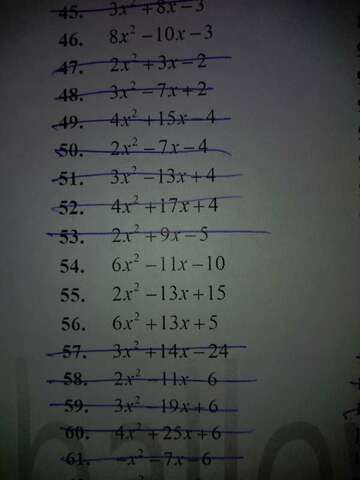 45. 3x² + 8x - 3
46. 8x² - 10x - 3
47. 2x² + 3x - 2
48. 3x² - 7x + 2
49. 4x² + 15x - 4
50. 2x² - 7x - 4
51. 3x² - 13x + 4
52. 4x² + 17x + 4
53. 2x² + 9x - 5
54. 6x² - 11x - 10
55. 2x² - 13x + 15
56. 6x² + 13x + 5
57. 3x² + 14x - 24
58. 2x² - 11x - 6
59. 3x² - 19x + 6
60. 4x² + 25x + 6
61. -x² - 7x - 6